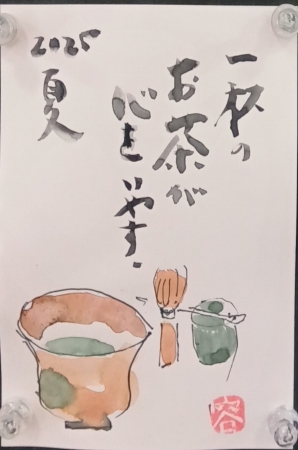 一杯の
お茶が
心を
いやす.
2025
夏